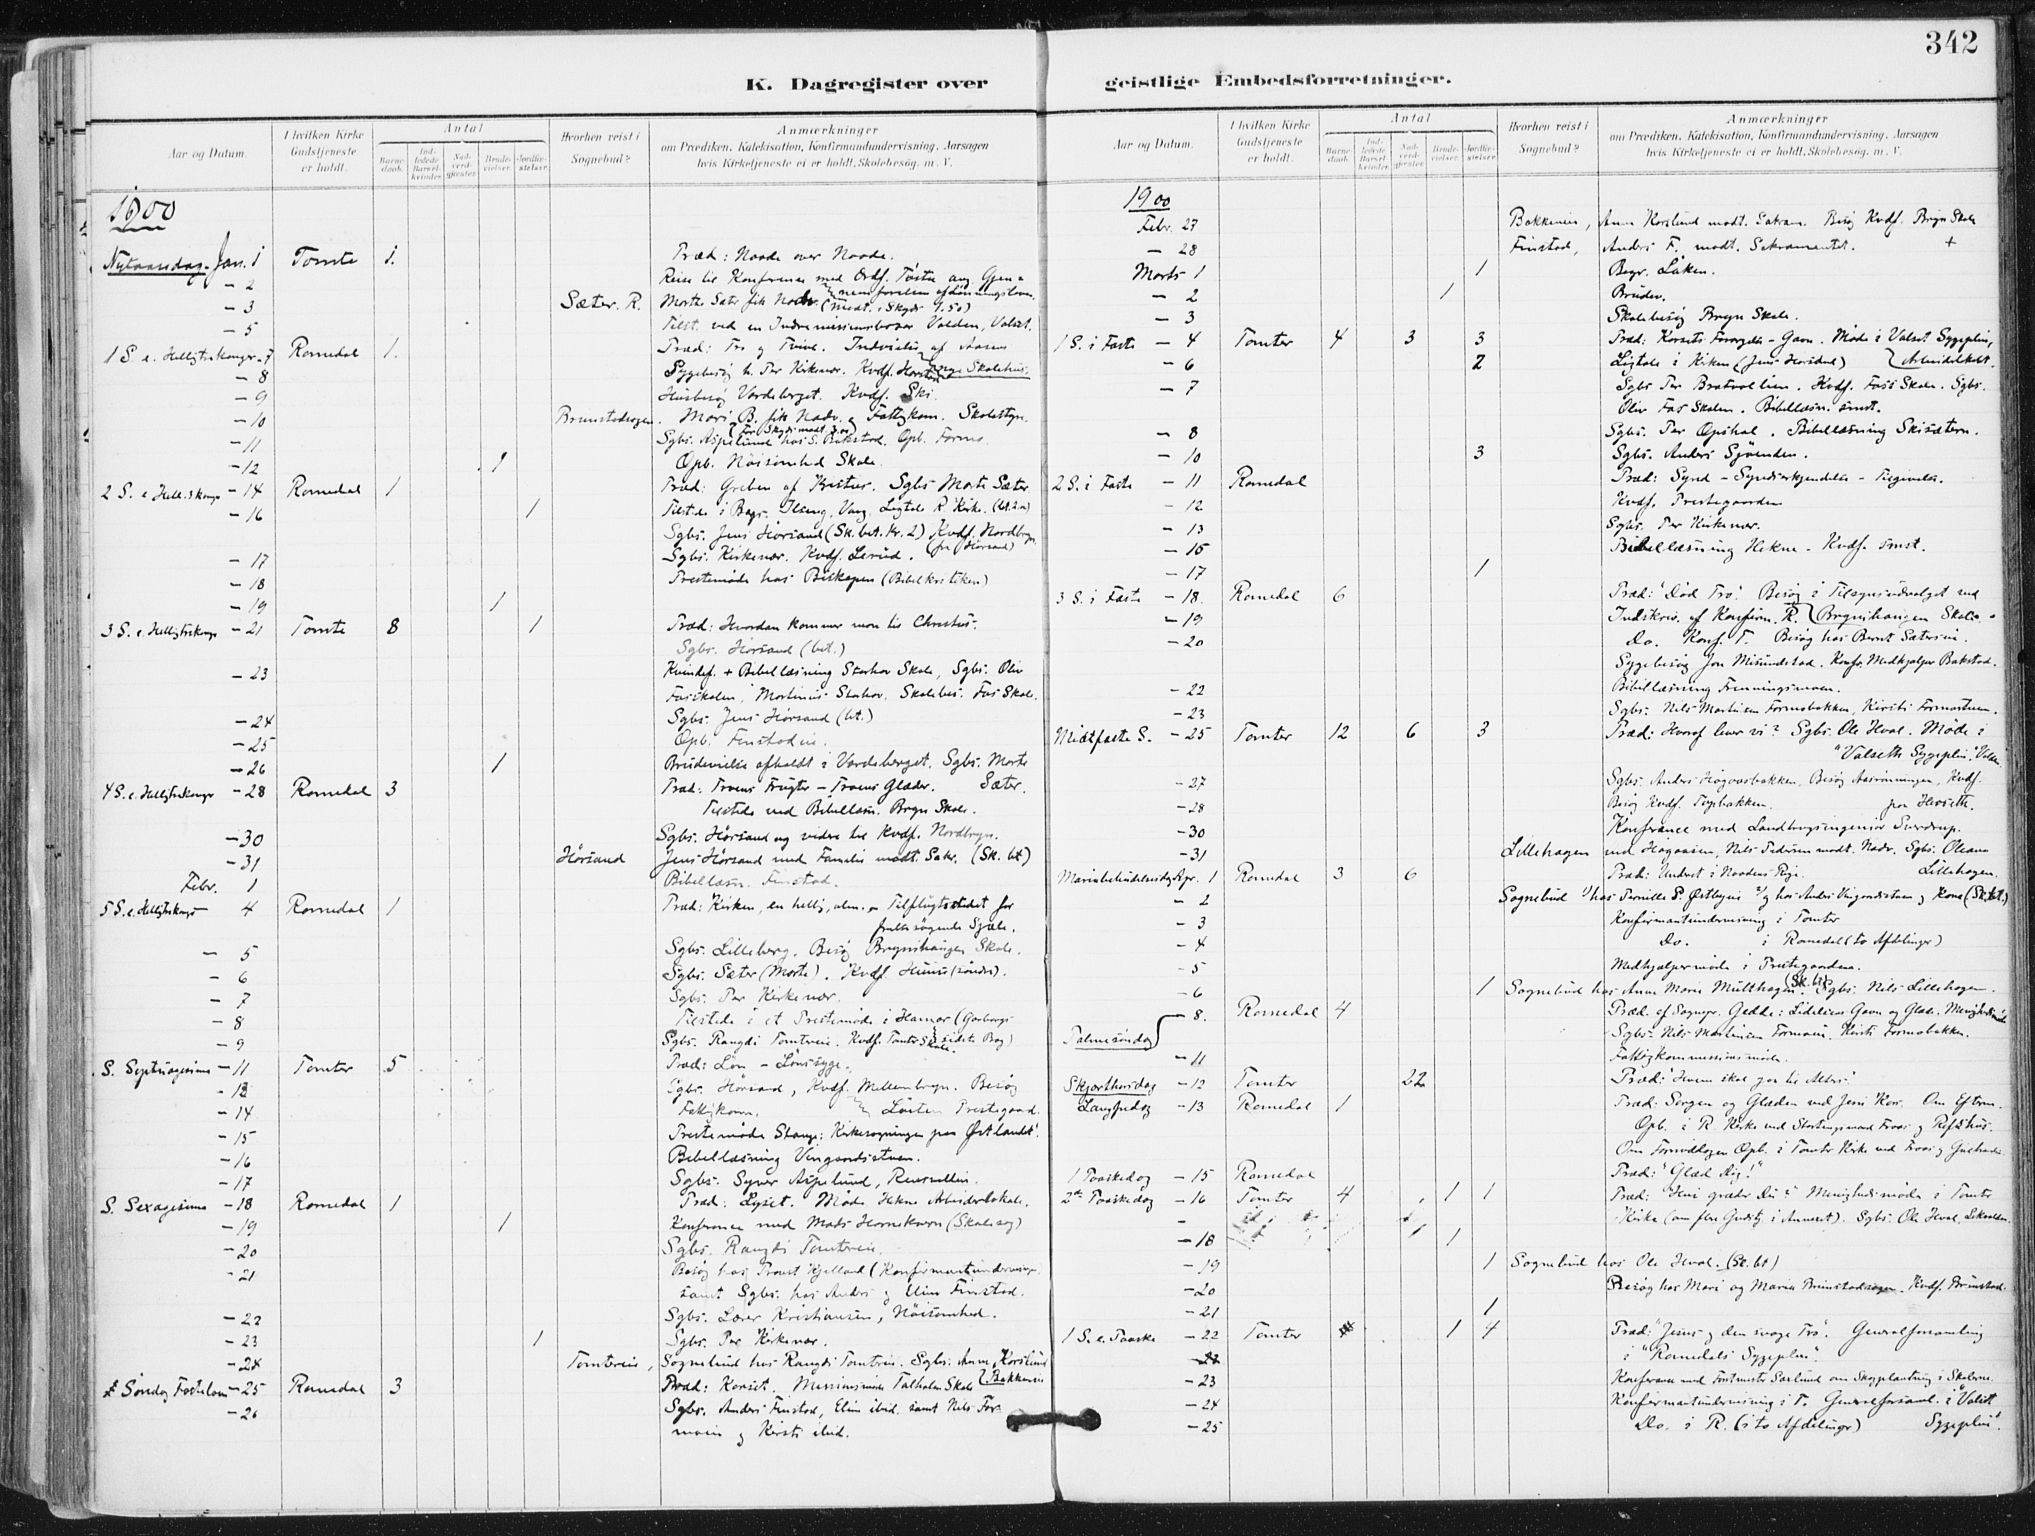 342
K. Dagregister over geistlige Embedsforretninger.
Aar og Datum.
I hvilken Kirke Gudstjeneste er holdt.
Antal
Barnedaab.
Indledede Barselkvinder.
Nadverdgjester.
Brudevielser.
Jordfæstelser.
Hvorhen reist i Sognebud?
Anmærkninger
om Prædiken, Katekisation, Konfirmandundervisning, Aarsagen
hvis Kirketjeneste ei er holdt, Skolebesøg, m. V.
1900
Nytaarsdag. Jan. 1 Tomte 1. Præd: Naade over Naade.
- 2 Reise til Konferense med Ordf.
- 3 Sæter. R. Morte Sæter fik Nadv.
- 5 Tilst. ved en
1 S. e. Helligtrekonger - 7 Romedal 1. Præd: Tro og Tvivl. Indvielse af Aasens
- 8 Sygebesøg h. Per Kirkenær. Kvdf. Skolehus.
- 9 Husbesøg Vardeberget. Kvdf. Ski.
- 10 Brunstadvogen. Mari B. fik Nadv. Fattigkom. Skolestyr.
- 11 Sgbs. Aspelund hos S. Bakstad. Opb. Formo.
- 12 1 Opb. Nöisomhed Skole.
2 S. e. Hell. 3 kong. - 14 Romedal 1 Præd: Sgbs. Morte Sæter
- 16 1 Tilstede i Begr. Ilseng, Vang. Ligtale R. Kirke.
Sgbs. Jens Hörsand (Sk. bet. Kr. 2) Kvdf. Nordbryn.
- 17 Sgbs. Kirkenær. Kvdf. Lerud.
- 18 Prestemøde hos Biskopen (Bibelkritiken)
- 19 1
3 S. e. Helligtrekong. - 21 Tomte 8 1 Præd: Hvordan kommer man til Christus.
Sgbs. Hörsand (bet.)
- 23 Kvindef. + Bibellæsning Storhov Skole, Sgbs. Oliv
Fasskolen, Martinus Storhov. Skolebes. Fas Skole.
- 24 Sgbs. Jens Hörsand (bt.)
- 25 Opb. Finstadeie.
- 26 1 Brudevielse afholdt i Vardeberget. Sgbs. Morte
Sæter.
4 S. e. Helligtrekonger - 28 Romedal 3 Præd: Troens Frugter - Troens Glæder.
Tilstede ved Bibellæsn. Bryn Skole.
- 30 Sgbs. Hörsand og videre til Kvdf. Nordbryn.
- 31 Hörsand Jens Hörsand med Familie modt. Sakr. (Sk. bt)
Febr. 1 Bibellæsn. Finstad.
5 S. e. Helligtrekong. 4 Romedal 1 Præd: Kirken, en hellig, alm. Tilflugtsstedet for
frelsesøgende Sjæle.
- 5 Sgbs. Lilleberg. Besøg Brynshaugen Skole.
- 6 Sgbs. Sæter (Morte). Kvdf. Huus (söndre).
- 7 Sgbs. Per Kirkenær.
- 8 Tilstede i et Prestemøde i Hamar (Garborgs
sidste Bog)
- 9 Sgbs. Rangdi Tomteeie. Kvdf. Tomter Skole.
S. Septuagesima - 11 Tomter 5 Præd: Lön - Lönsyge.
- 13 Sgbs. Hörsand, Kvdf. Mellembryn. Besøg
- 14 Fattigkomm. Löiten Prestegaard.
- 15 Prestemøde Stange: Kirkesogningen paa Østlandet.
- 16 Bibellæsning Vingaardsstuen.
- 17 Sgbs. Syver Aspelund,
S. Sexagesima - 18 Romedal 1 Præd: Lyset. Møde Hekne Arbeiderlokale.
- 19 1 Konferense med Mads Hornskvern (Skolesag)
- 20 Sgbs. Rangdi Tomteeie.
- 21 Besøg hos Provst Kjelland (Konfirmantundervisn.
samt Sgbs. hos Anders og Elin Finstad.
- 22 Sgbs. Lærer Kristiansen, Nöisomhed.
- 23 1 Sgbs. Per Kirkenær.
- 24 Tomteeie, Sognebud hos Rangdi Tomteeie. Sgbs. Anne Korslund
Bakkeeie
Søndag Fastelavn - 25 Romedal 3 Præd: Korset. Missionsmøde Talholen Skole
- 26 Sgbs. Anders Finstad, Elin ibid. samt Nils For-
moeie og Kirsti ibid.
Aar og Datum.
I hvilken Kirke Gudstjeneste er holdt.
Antal
Barnedaab.
Indledede Barselkvinder.
Nadverdgjester.
Brudevielser.
Jordfæstelser.
Hvorhen reist i Sognebud?
Anmærkninger
om Prædiken, Katekisation, Konfirmandundervisning, Aarsagen
hvis Kirketjeneste ei er holdt, Skolebesøg, m. V.
1900
Febr. 27 Bakkeeie, Anne Korslund modt. Sakram. Besøg Kvdf. Bryn Skole
- 28 Finstad, Anders F. modt. Sakramentet. +
Marts 1 1 Begr. Laken.
- 2 1 Brudev.
- 3 Skolebesøg Bryn Skole.
1 S. i Faste - 4 Tomter 4 3 3 Præd: Korsets Forargelse - Gavn. Møde i Valset Sygepleie,
Arbeidslokale.
- 6 2 Ligtale i Kirken (Jens Hörsand)
- 7 Sgbs. Per Bratvoldeie. Kvdf. Fass Skole. Sgbs.
Oliv Fas Skolen. Bibellæsn. smst.
- 8 Sgbs. Per Opshal. Bibellæsning Skisætern.
- 10 3 Sgbs. Anders Sjøenden.
2 S. i Faste - 11 Romedal Præd: Synd - Syndserkjendelse - Tilgivelse.
- 12 Kvdf. Prestegaarden
- 13 Sgbs. Per Kirkenær.
- 15 Bibellæsning Hekne. Kvdf. smst.
- 17 1
3 S. i Faste - 18. Romedal 6 Præd: "Død Tro". Besøg i Tilsynsudvalget ved
Brynshaugen Skole.
- 19 Indskriv. af Konfirm. R.
- 20 Do. Konf. T. Besøg hos Bernt Sætereie.
Sygebesøg Jon Misundstad. Konfr. Medhjælper Bakstad.
- 22 Bibellæsning Frenningsmoen.
- 23 Sgbs. Nils Martinsen Formobakken, Kirsti Formostuen.
Midtfaste S. - 25 Tomter 12 6 3 Præd: Hvoraf lever vi? Sgbs. Ole Hval. Møde i
"Valseth Sygepleie"
- 27 Sgbs. Anders Høgaasbakken. Besøg Kvdf.
paa Hverseth.
- 28 Besøg Kvdf.
- 30 Konferance med Landbrugsingeniør Sverdrup.
- 31 Lillehagen ved Hagaasen, Nils Pedersen modt. Nadv. Sgbs. Oleana
Lillehagen.
Mariæbebudelsesdag Apr. 1 Romedal 3 6 Præd: Undret i Naadens Rige.
- 2 Sognebud hos Pernille P. Østbyeie og hos Anders Vingaardsstuen og Kone (Sk. bt.)
- 3 Konfirmantundervisning i Tomter
- 4 Do. i Romedal (to Afdelinger)
- 5 Medhjælpermøde i Prestegaarden.
- 6 1 Sognebud hos Anne Marie Multhagen (Sk. bt). Sgbs. Nils Lillehagen.
Palmesøndag - 8. Romedal 4 Præd. af Sognepr. Gedde: Lidelsens Gavn og Glæde. Menighedsmøde
Sgbs. Nils Martinsen Formoeie, Kirsti Formobakken.
- 11 Fattigkommissionsmøde.
Skjærthorsdag - 12 Tomter 22 Præd: "Hvem skal gaa til Alters".
Langfredag - 13 Romedal 1 Præd: Sorgen og Glæden ved Jesu Kors. Om Efterm.
Opb. i R. Kirke ved Stortingsmand Five og Refshus.
Om Formiddagen Opb. i Tomter Kirke ved
1 Paaskedag - 15 Romedal Præd: "Glæd dig!"
2den Paaskedag - 16 Tomter 4 1 1 Præd: "Hvi græder Du?" Menighedsmøde i Tomter
Kirke (om flere Gudstj. i Annexet). Sgbs. Ole Hval,
- 18 1 1
- 19 1 Sognebud hos Ole Hval. (Sk. bt)
- 20 Besøg hos Mari og Maria Brunstadvogen. Kvdf. Brunstad.
- 21 1
1 S. e. Paaske - 22 Tomter 1 4 Præd: "Jesus og den svage Tro". Generalforsamling
i "Romedals Sygepleie".
- 23 Konferance med Forstmester Sørlund om Skogplantning i Skolerne.
- 24 Konfirmantundervisning i T. Generalforsaml. i "Valset
Sygepleie".
- 25 Do. i R. (i to Afdelinger)